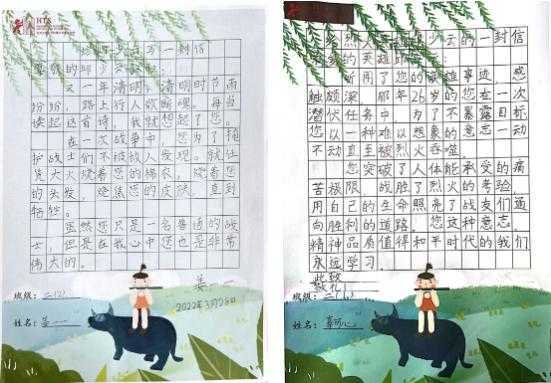 HTS
给邱少云的一封信
又一年清明,清明时节雨
纷纷,路上行人欲断魂。每当
读起这首诗,我就想起了您。
在一次战争中,您为了掩
护战士们不被敌人发现。就让
大火烧着您的棉衣,烧着您
的头发,烧焦您的皮肤,直到
牺牲。
虽然您只是一名普通的战
士,但是在我心中您也是非常
伟大的。
2022年3月28日
班级:二(2)
姓名:
烈人 少云的一封信
的英雄
听闻了您的英雄事迹,感
触颇深。那年26岁的您在一次
潜伏任务中,为了不暴露目标,
您以一种难以想象的意志一动
不动直至被烈火吞噬。
您突破了人体能承受的痛
苦极限,战胜了烈火的考验,
用自己的生命照亮了战友们通
向胜利的道路。您这种意志、
精神品质值得和平时代的我们
永远学习。
此致
敬礼
班级:
姓名: